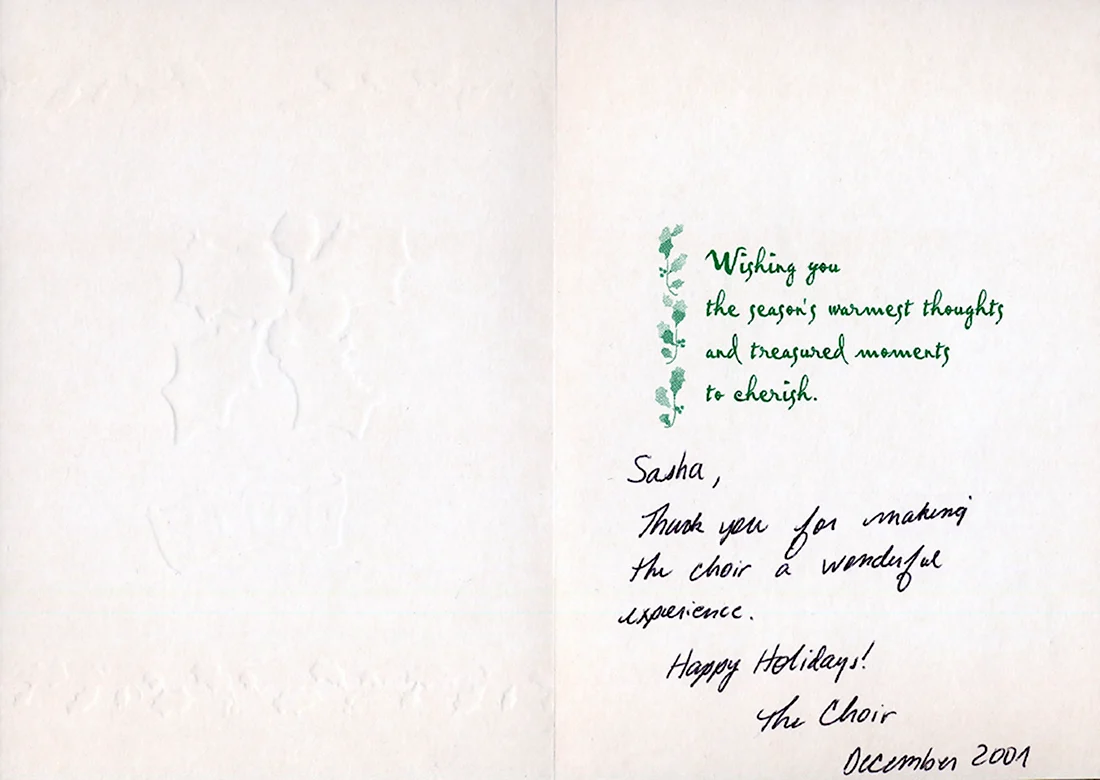 Wishing you
the season's warmest thoughts
and treasured moments
to cherish.
Sasha,
Thank you for making
the choir a wonderful
experience.
Happy Holidays!
The Choir
December 2001